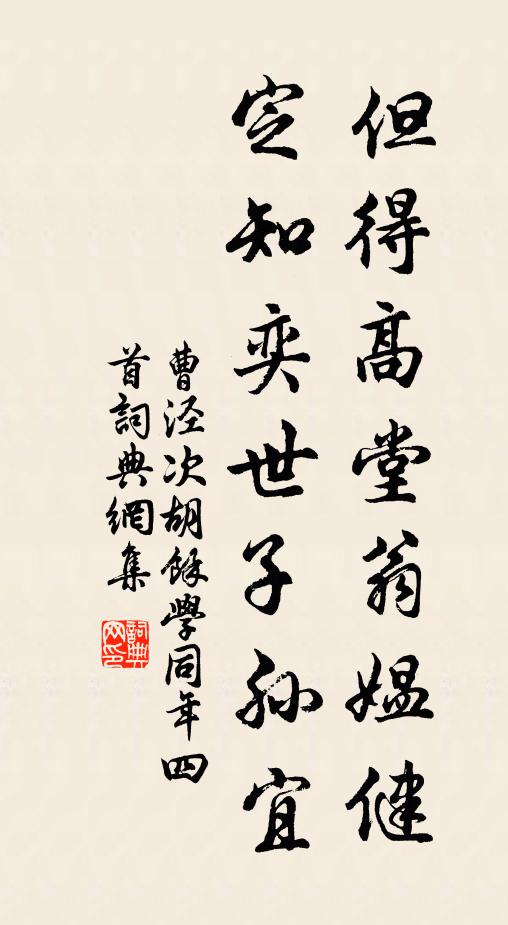 但得高堂翁媪健
定知奕世子孫宜
曹涇次胡餘學同年四
首詞典網集
詞典網印